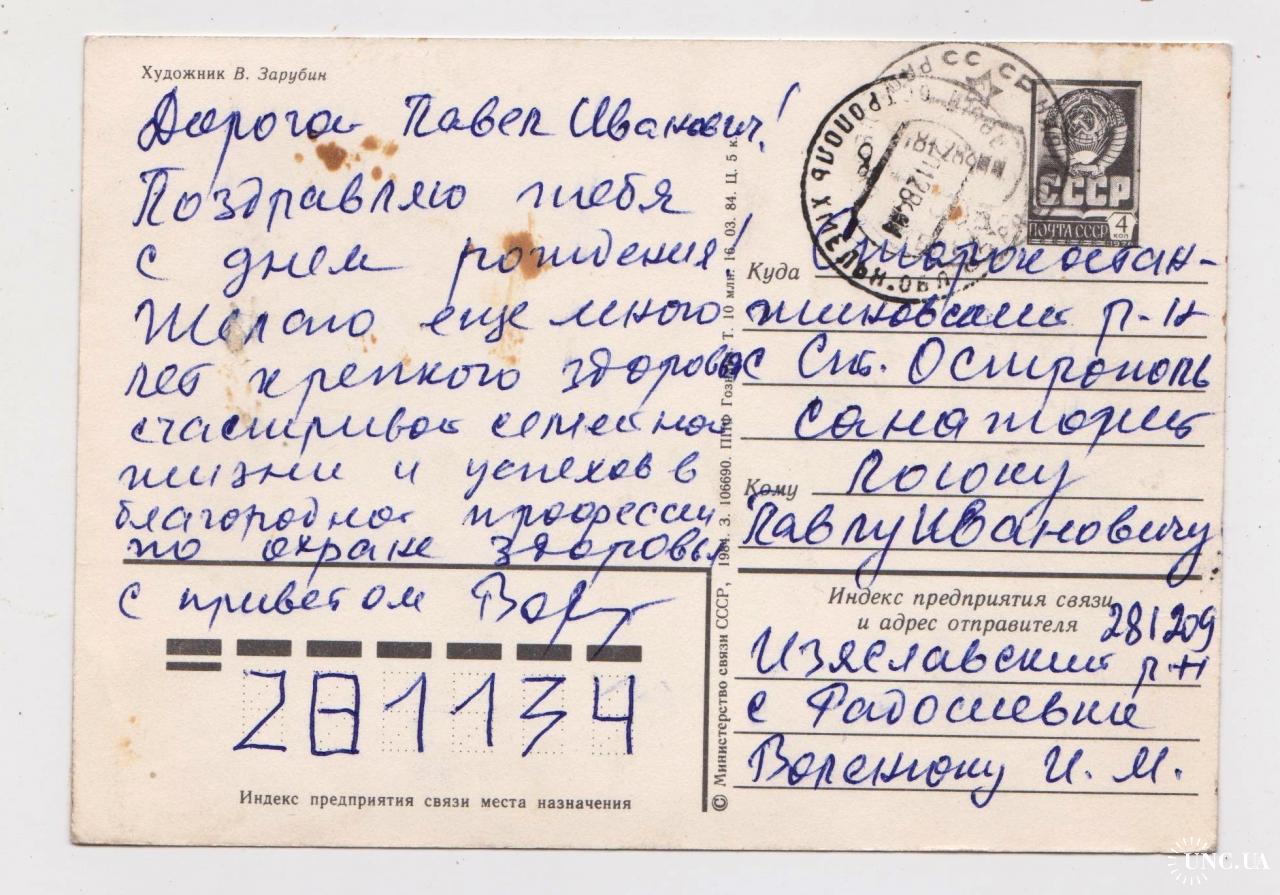 Художник В. Зарубин
Дорогой Павел Иванович!
Поздравляю тебя
с днем рождения!
Желаю еще много
лет крепкого здоровья
счастливой семейной
жизни и успехов в
благородной профессии
по охране здоровья
с приветом
281134
Индекс предприятия связи места назначения
© Министерство связи СССР, 1984. З. 106690. ППФ Гознака. Т. 10 млн. 16. 03. 84. Ц. 5 к.
СССР
ПОЧТА СССР
4 КОП
1976
Куда Староконстан-
тиновский р-н
с Ст. Острополь
санаторий
Кому
Павлу Ивановичу
Индекс предприятия связи
и адрес отправителя 281209
Изяславский р-н
с Радошевки
И. М.
UNC.UA